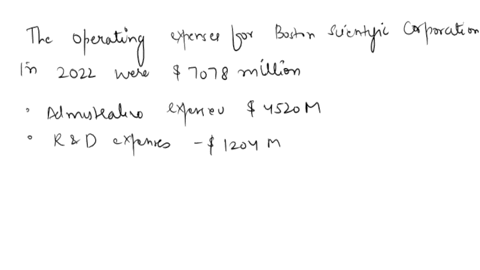 The operating expenses for Boston Scientific Corporation
in 2022 were $7078 million
• Administrative expenses $4520M
• R&D expenses - $1204 M